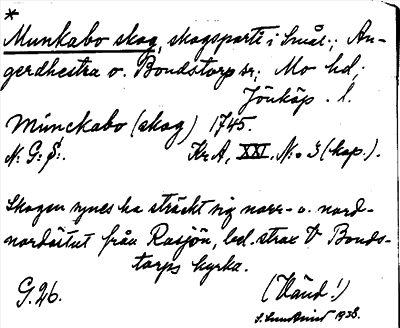 *
Munkabo skog, skogsparti i Smål.; An-
gerdhestra o. Bondstorp sr; Mo hd;
Jönköp. l.
Munckabo (skog) 1745.
N: G: S:. Kr A, XXI. N:o 3 (kop.).
Skogen synes ha sträckt sig norr- o. nord-
nordöstut från Rasjön, bel. strax V Bonds-
torps kyrka.
G. 26. (Vänd!)
1938.